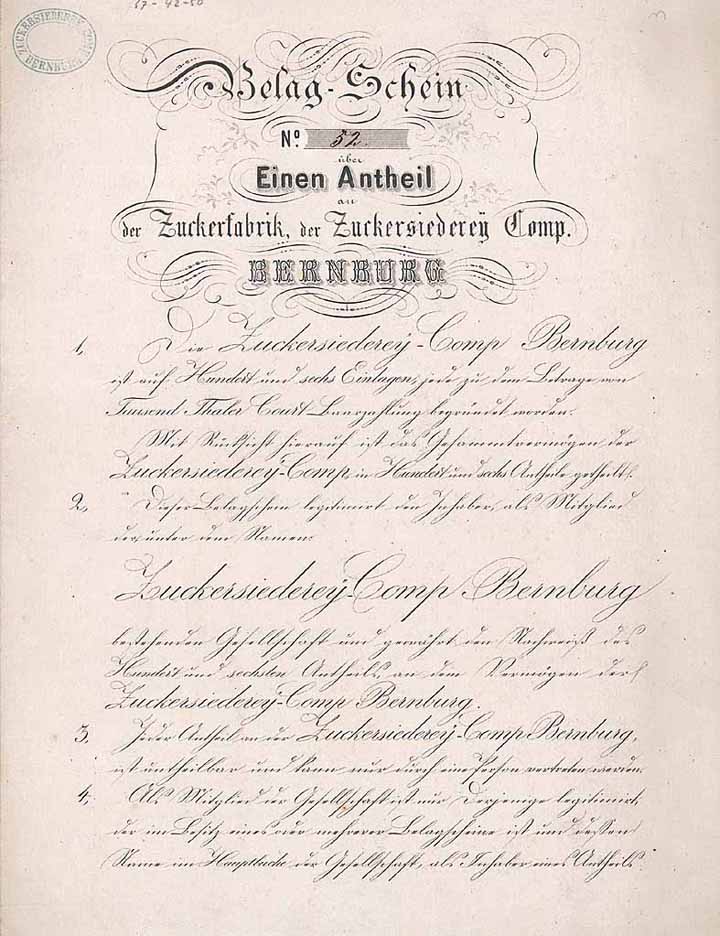 57-42-50
ZUCKERSIEDEREY COMP. BERNBURG
Belag-Schein
No. 52.
über
Einen Antheil
an
der Zuckerfabrik, der Zuckersiedereÿ Comp.
BERNBURG
1, Die Zuckersiedereÿ-Comp Bernburg
ist auf Hundert und sechs Einlagen, jede zu dem Betrage von
Tausend Thaler Court Baarzahlung begründet worden.
Mit Rücksicht hierauf ist das Gesammtvermögen der
Zuckersiedereÿ-Comp. in Hundert und sechs Antheile getheilt.
2, Dieser Belagschein legitimirt den Inhaber, als Mitglied
der unter dem Namen:
Zuckersiedereÿ-Comp Bernburg
bestehenden Gesellschaft und gewährt den Nachweiß des
Hundert und sechsten Antheils, an dem Vermögen der
Zuckersiedereÿ-Comp Bernburg.
3, Jeder Antheil an der Zuckersiedereÿ-Comp Bernburg,
ist untheilbar und kann nur durch eine Person vertreten werden.
4, Als Mitglied der Gesellschaft ist nur Derjenige legitimirt,
der im Besitz eines oder mehrerer Belagscheine ist und dessen
Name im Hauptbuche der Gesellschaft, als Inhaber eines Antheils